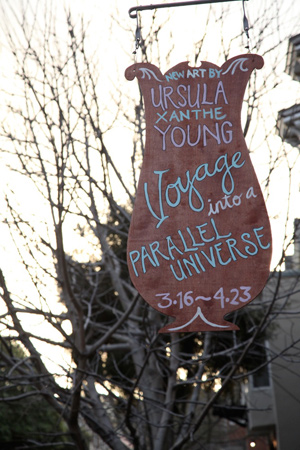 NEW ART BY
URSULA
XANTHE
YOUNG
Voyage
into a
PARALLEL
UNIVERSE
3·16~4·23